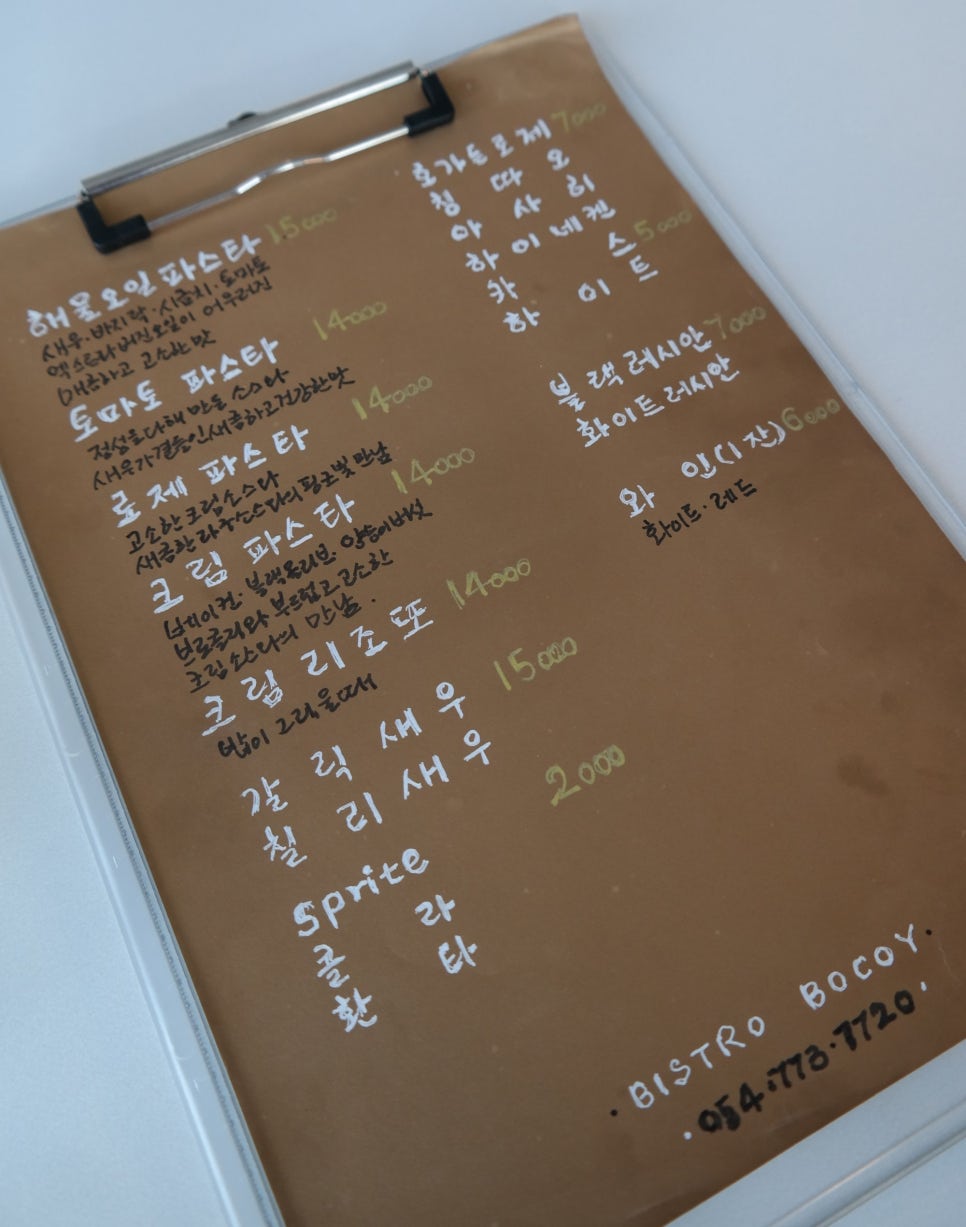 해물오일파스타 15000
새우·바지락·시금치·토마토
엑스트라버진오일이 어우러진
매콤하고 고소한맛
토마토 파스타 14000
정성을다해 만든 소스다
새우가곁들인새콤하고건강한맛
로제 파스타 14000
고소한크림소스다
새콤한라구소스다의핑크빛만남
크림 파스타 14000
베이컨·블랙올리브·양송이버섯
브로콜리와 부드럽고 고소한
크림소스다의 만남.
크림 리조또 14000
밥이 그리울때
갈릭새우 15000
칠리새우
sprite 2000
콜라
환타
호가든로제 7000
칭따오
아사히
하이네켄
카스 5000
하이트
블랙러시안 7000
화이트러시안
와인(1잔) 6000
화이트·레드
·BISTRO BOCOY·
·054·773·7720·